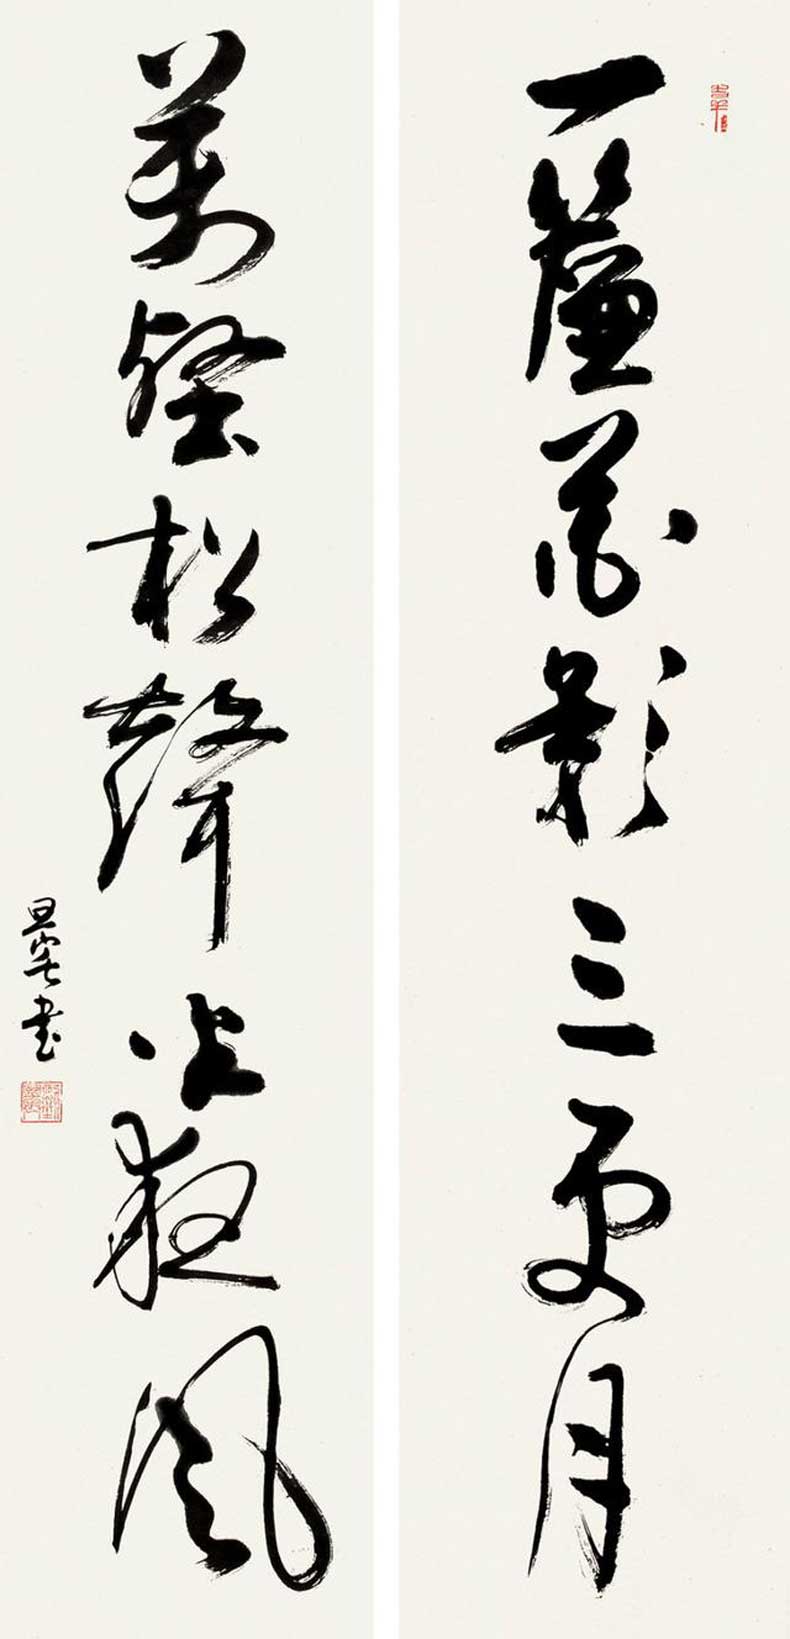 一簾花影三更月
萬壑松聲半夜風
書